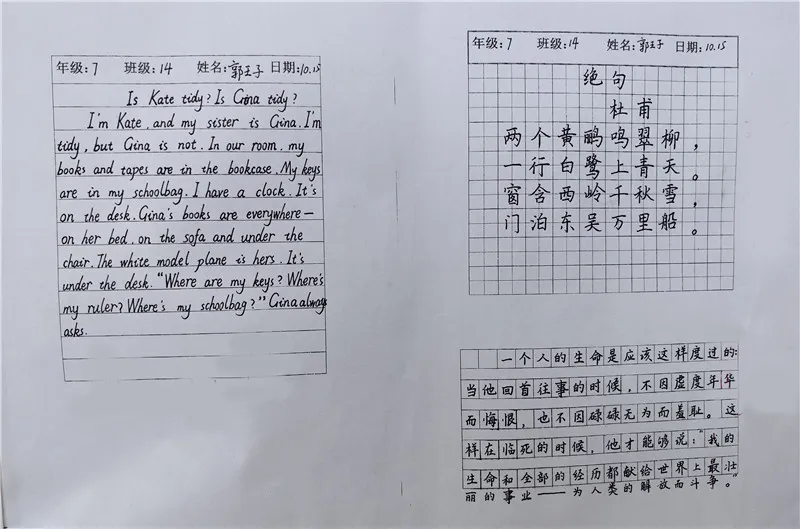 年级:7 班级:14 姓名:郭王子 日期:10.15
Is Kate tidy? Is Gina tidy?
I'm Kate, and my sister is Gina. I'm
tidy, but Gina is not. In our room, my
books and tapes are in the bookcase. My keys
are in my schoolbag. I have a clock. It's
on the desk. Gina's books are everywhere—
on her bed, on the sofa and under the
chair. The white model plane is hers. It's
under the desk. "Where are my keys? Where's
my ruler? Where's my schoolbag?" Gina always
asks.
年级:7 班级:14 姓名:郭王子 日期:10.15
绝句
杜甫
两个黄鹂鸣翠柳,
一行白鹭上青天。
窗含西岭千秋雪,
门泊东吴万里船。
一个人的生命是应该这样度过的:
当他回首往事的时候,不因虚度年华
而悔恨,也不因碌碌无为而羞耻。这
样在临死的时候,他才能够说:"我的
生命和全部的经历都献给世界上最壮
丽的事业——为人类的解放而斗争。"